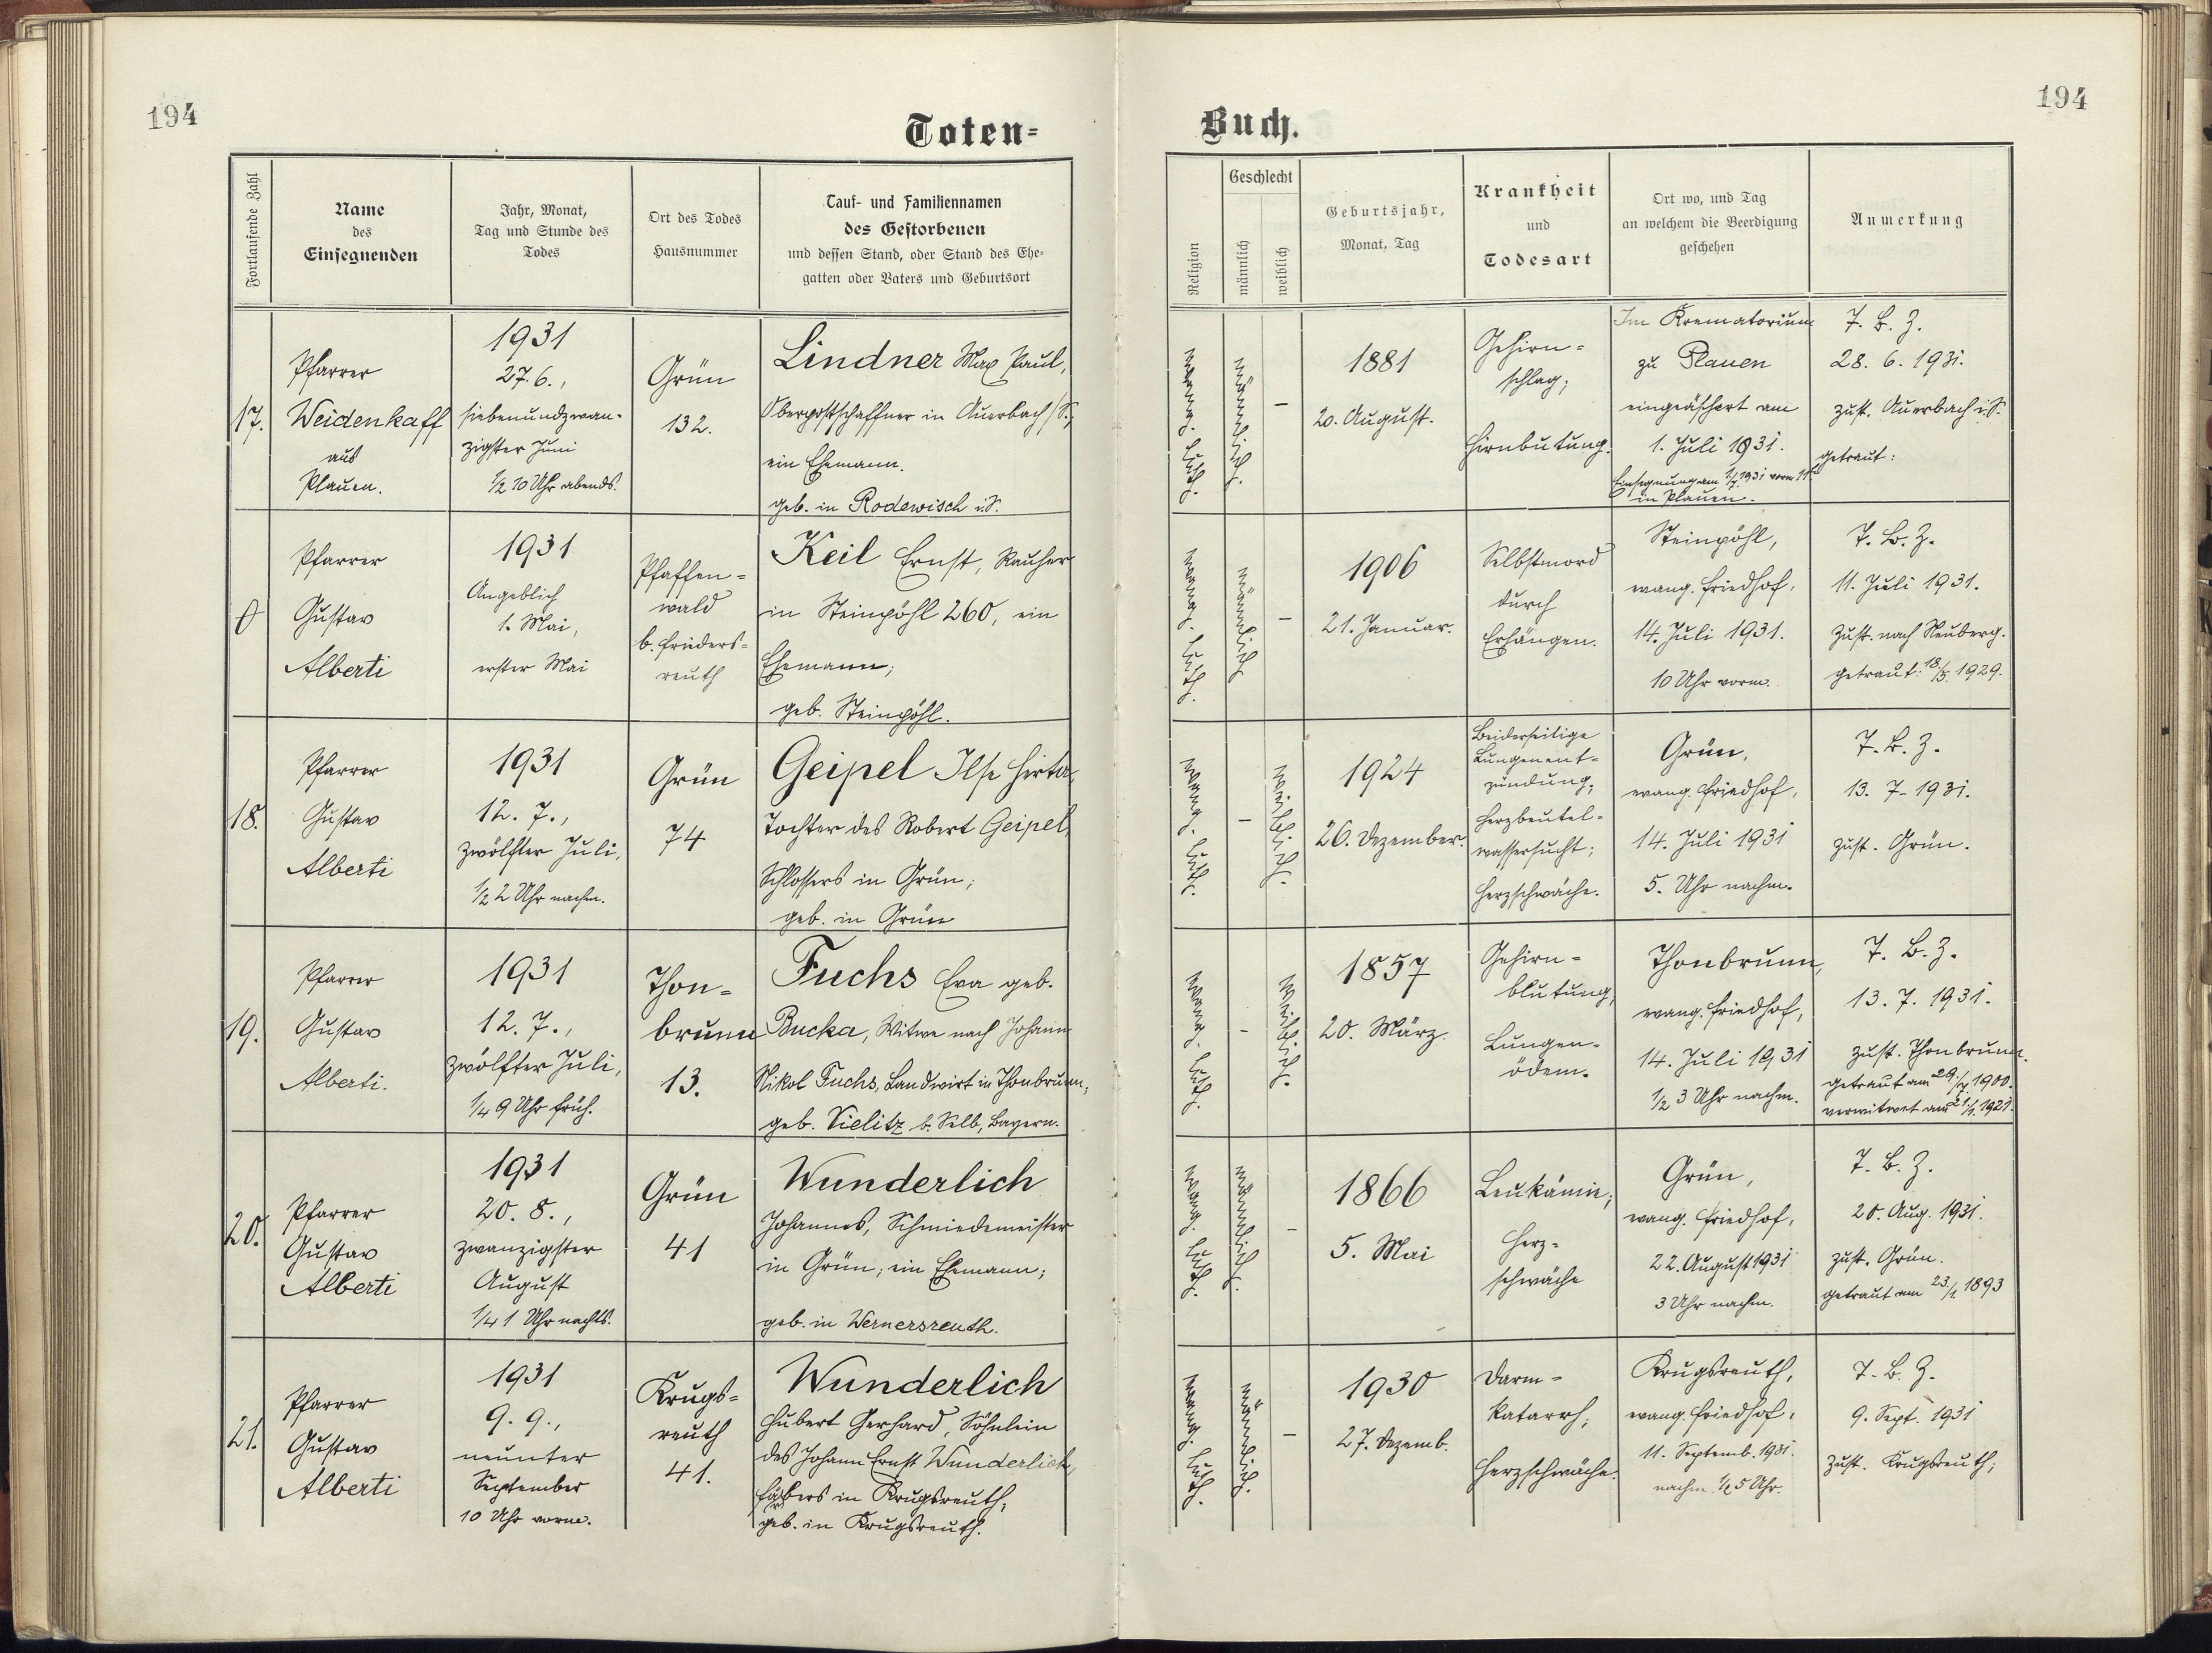 194
Toten-
Fortlaufende Zahl
Name
des
Einsegnenden
Jahr, Monat,
Tag und Stunde des
Todes
Ort des Todes
Hausnummer
Tauf- und Familiennamen
des Gestorbenen
und dessen Stand, oder Stand des Ehe-
gatten oder Vaters und Geburtsort
17.
Pfarrer
Weidenkaff
aus
Plauen.
1931
27.6.,
siebenundzwan-
zigster Juni
½ 10 Uhr abends.
Grün
132.
Lindner Max Paul,
Oberpostschaffner in Auerbach/S.,
ein Ehemann.
geb. in Rodewisch i.S.
0
Pfarrer
Gustav
Alberti
1931
Angeblich
1. Mai,
erster Mai
Pfaffen-
wald
b. Frieders-
reuth
Keil Ernst, Rauher
in Steinpöhl 260, ein
Ehemann;
geb. Steinpöhl.
18.
Pfarrer
Gustav
Alberti
1931
12. 7.,
zwölfter Juli,
½ 2 Uhr nachm.
Grün
74
Geipel Ilse Herta,
Tochter des Robert Geipel,
Schlossers in Grün;
geb. in Grün
19.
Pfarrer
Gustav
Alberti.
1931
12. 7.,
zwölfter Juli,
¼ 9 Uhr früh.
Thon-
brunn
13.
Fuchs Eva geb.
Bucka, Witwe nach Johann
Nikol Fuchs, Landwirt in Thonbrunn;
geb. Vielitz b. Selb, Bayern.
20.
Pfarrer
Gustav
Alberti
1931
20. 8.,
zwanzigster
August
¼ 1 Uhr nachts.
Grün
41
Wunderlich
Johannes, Schmiedemeister
in Grün; ein Ehemann;
geb. in Wernersreuth.
21.
Pfarrer
Gustav
Alberti
1931
9. 9.,
neunter
September
10 Uhr vorm.
Krugs-
reuth
41.
Wunderlich
Hubert Gerhard, Söhnlein
des Johann Ernst Wunderlich,
Färbers in Krugsreuth;
geb. in Krugsreuth.
194
Buch.
Religion
Geschlecht
männlich
weiblich
Geburtsjahr,
Monat, Tag
Krankheit
und
Todesart
Ort wo, und Tag
an welchem die Beerdigung
geschehen
Anmerkung
evang. luth.
männlich.
-
1881
20. August.
Gehirn-
schlag;
Hirnblutung.
Im Krematorium
zu Plauen
eingeäschert am
1. Juli 1931.
Einsegnung am 1/7. 1931 vorm 11
in Plauen.
T. B. Z.
28. 6. 1931.
zust. Auerbach i.S.
getraut:
evang. luth.
männlich
-
1906
21. Januar.
Selbstmord
durch
Erhängen.
Steinpöhl,
evang. Friedhof,
14. Juli 1931.
10 Uhr vorm.
T. B. Z.
11. Juli 1931.
Zust. nach Neuberg.
getraut: 18./5. 1929.
evang. luth.
-
weiblich.
1924
26. Dezember.
Beiderseitige
Lungenent-
zündung;
Herzbeutel-
wassersucht;
Herzschwäche.
Grün,
evang. Friedhof,
14. Juli 1931
5. Uhr nachm.
T. B. Z.
13. 7. 1931.
zust. Grün.
evang. luth.
-
weiblich.
1857
20. März.
Gehirn-
blutung,
Lungen-
ödem.
Thonbrunn,
evang. Friedhof,
14. Juli 1931
½ 3 Uhr nachm.
T. B. Z.
13. 7. 1931.
zust. Thonbrunn.
getraut am 29./7. 1900.
verwitwet am 21./1. 1921.
evang. luth.
männlich.
-
1866
5. Mai
Leukämie;
Herz-
schwäche
Grün,
evang. Friedhof,
22. August 1931
3 Uhr nachm.
T. B. Z.
20. Aug. 1931.
zust. Grün.
getraut am 23./1. 1893
evang. luth.
männlich.
-
1930
27. Dezemb.
Darm-
katarrh;
Herzschwäche.
Krugsreuth,
evang. Friedhof,
11. Septemb. 1931.
nachm. ½ 5 Uhr.
T. B. Z.
9. Sept. 1931
zust. Krugsreuth;